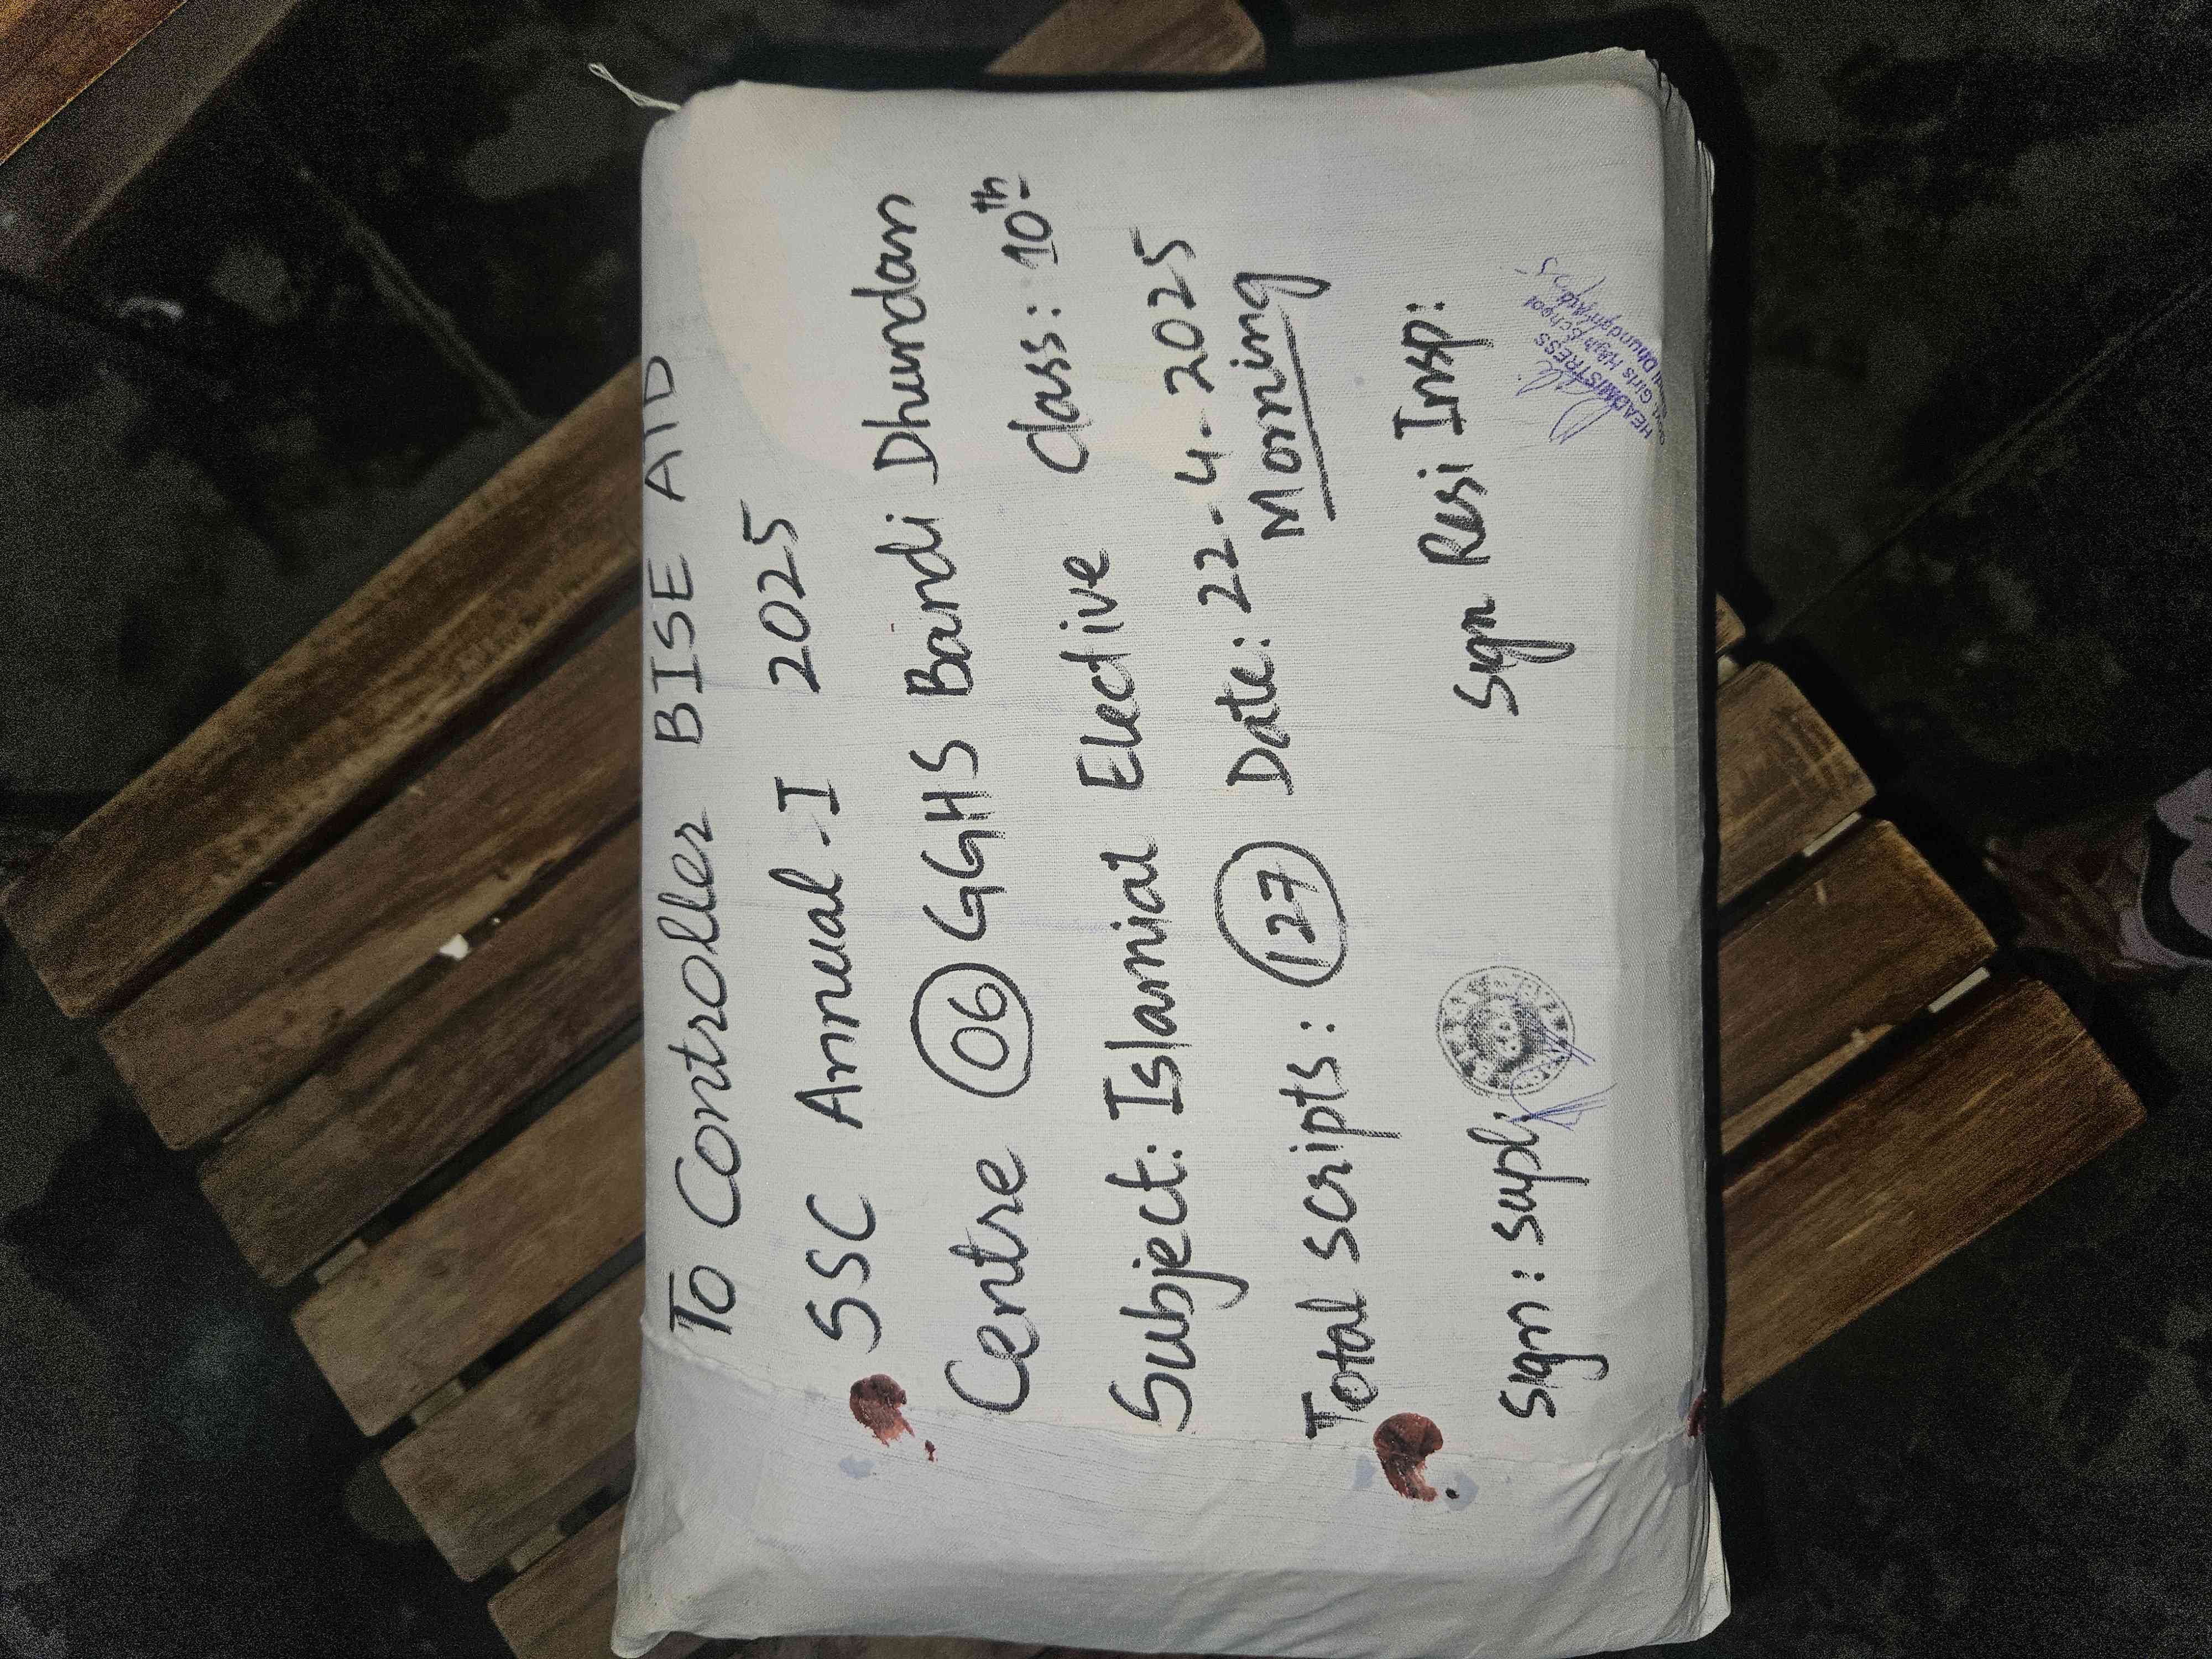 To Controller BISE ATD
SSC Annual-I 2025
Centre 06 GGHS Bandi Dhundan
Subject: Islamiat Elective Class: 10th
Total scripts: 127 Date: 22-4-2025
Morning
Sign: supt: Sign Resi Insp:
HEADMISTRESS
Govt. Girls High School